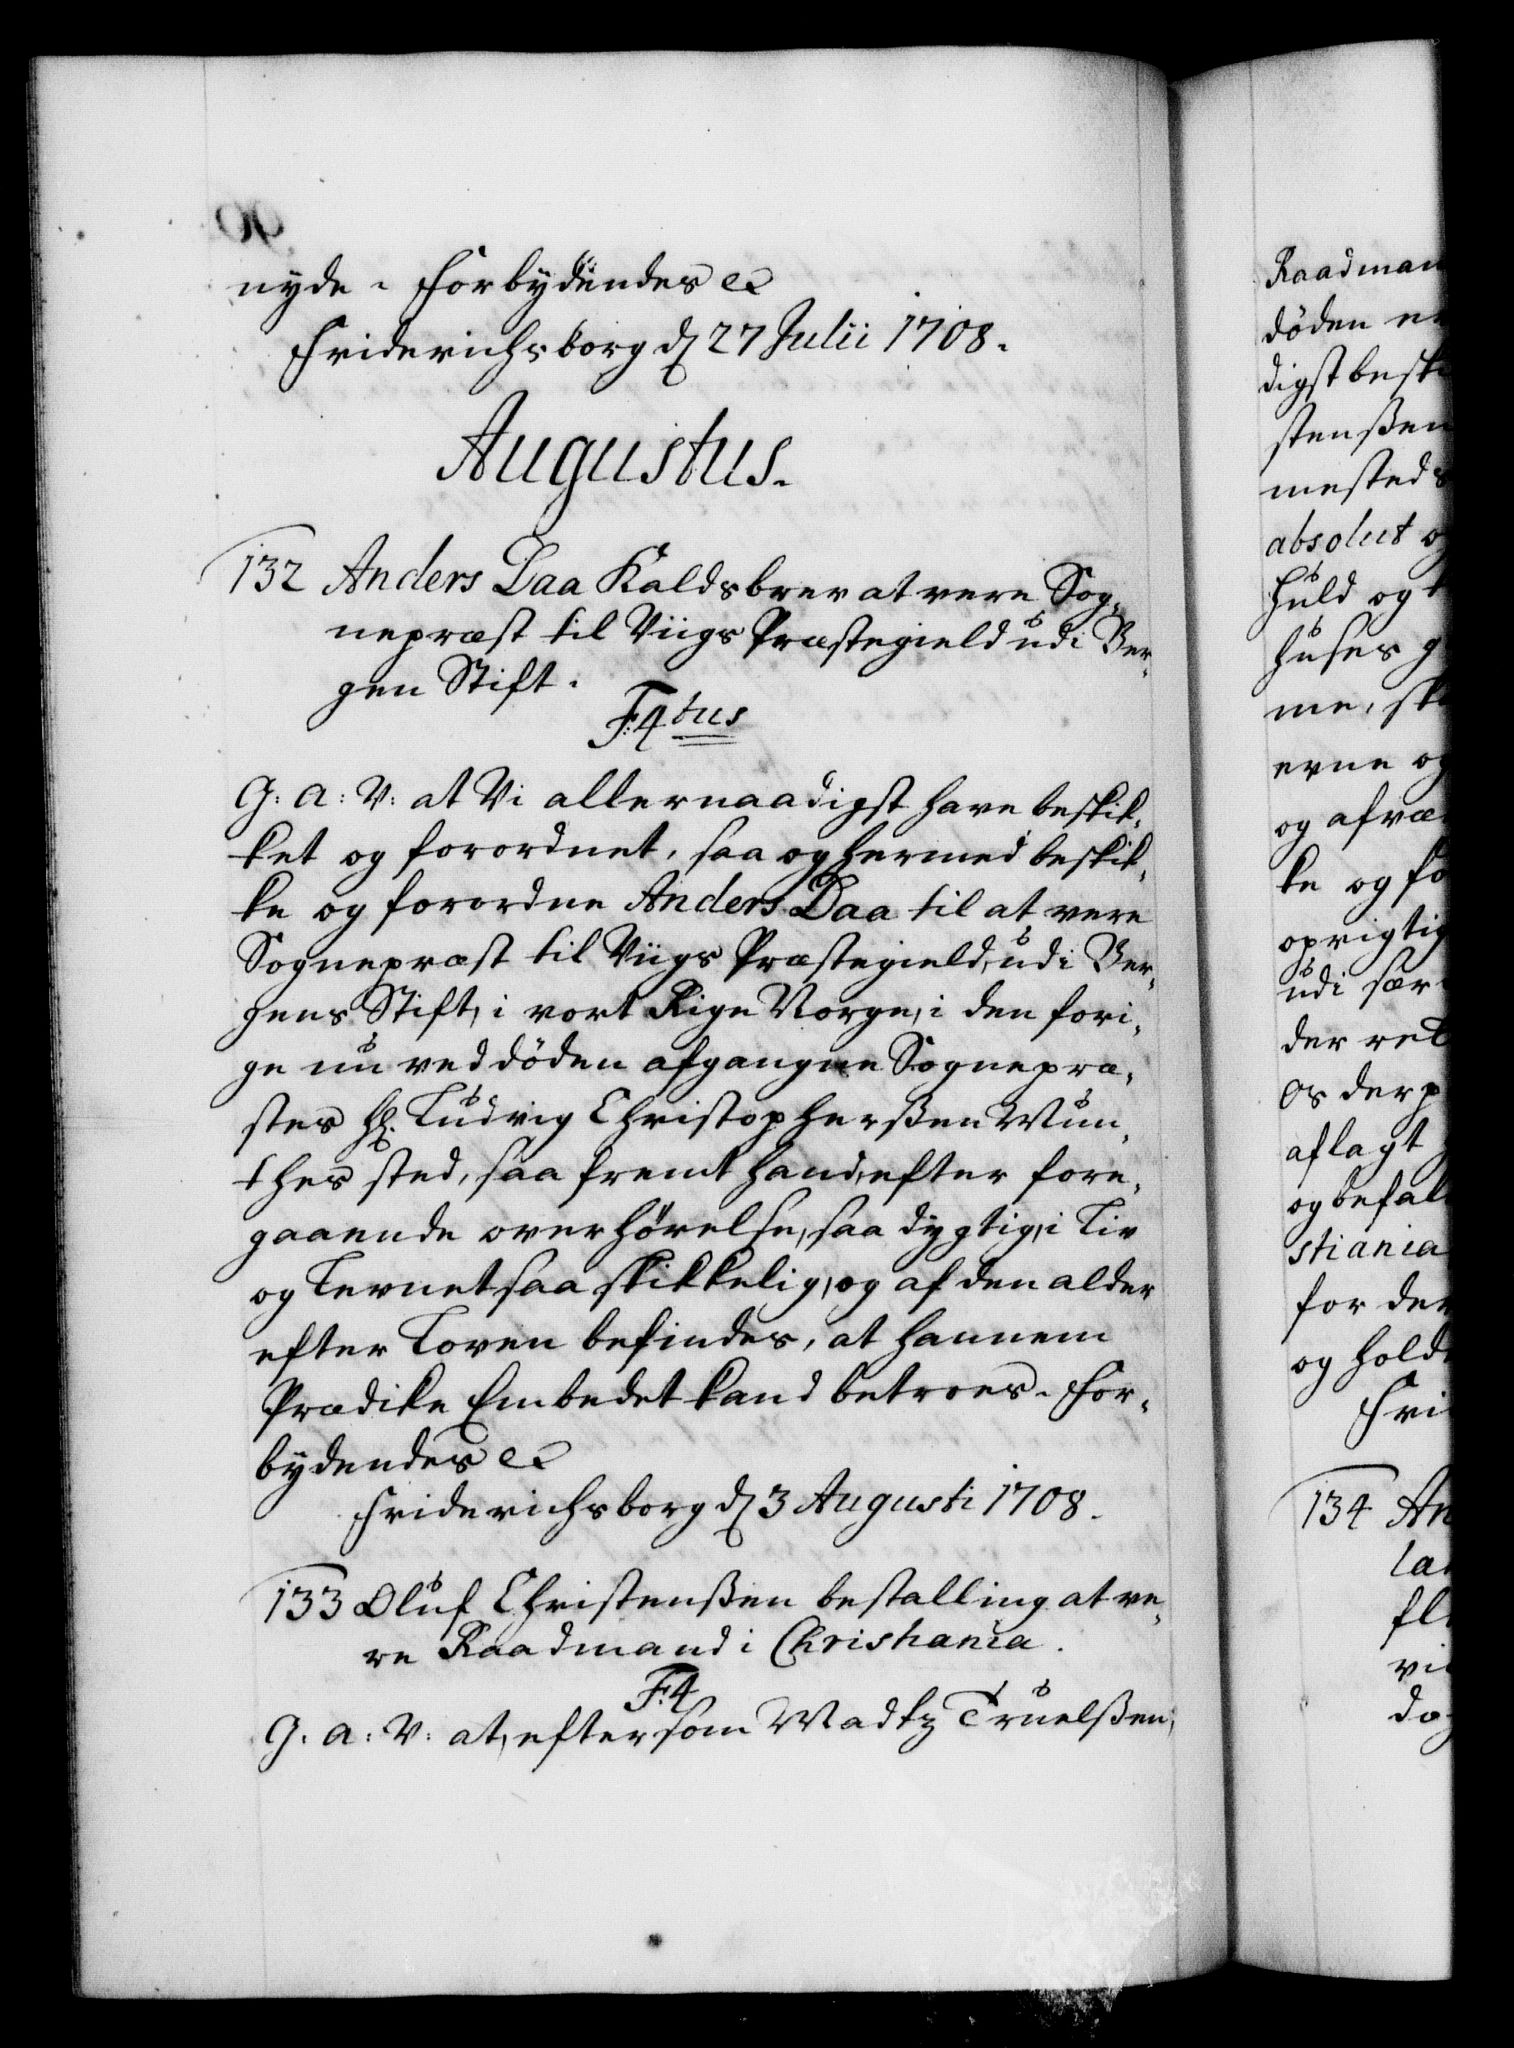 nyde. Forbydendes etc
Friderichsborg d 27 Julii 1708.
Augustus.
132 Anders Daa Kaldsbrev at vere Sog-
nepræst til Viigs Præstegield udi Ber-
gen Stift.
F: 4tus
G: A: V: at Vi allernaadigst have beskik-
ket og forordnet, saa og hermed beskik-
ke og forordne Anders Daa til at vere
Sognepræst til Viigs Præstegield, udi Ber-
gens Stift, i vort Rige Norge, i den fori-
ge nu ved döden afgangne Sognepræ-
stes Hr. Ludvig Christopherßen Mun-
thes sted, saa fremt hand, efter fore-
gaaende overhörelse, saa dygtig, i Liv
og Levnet saa skikkelig, og af den alder
efter Loven befindes, at hannem
Prædike Embedet kand betroes. For-
bydendes etc
Friderichsborg d 3 Augusti 1708.
133 Oluf Christenßen bestalling at ve-
re Raadmand i Christiania.
F: 4
G: A: V: at, eftersom Madtz Truelßen,
Raadman
döden
digst besk
stenßen
mesteds
absolut o
huld og
huses g
me, sk
evne og
og afvæ
ke og fo
oprigtig
udi sær
der ret
Os derp
aflagt
og befal
stiania
for der
og hold
Fri
134 An
la
fl
vi
do